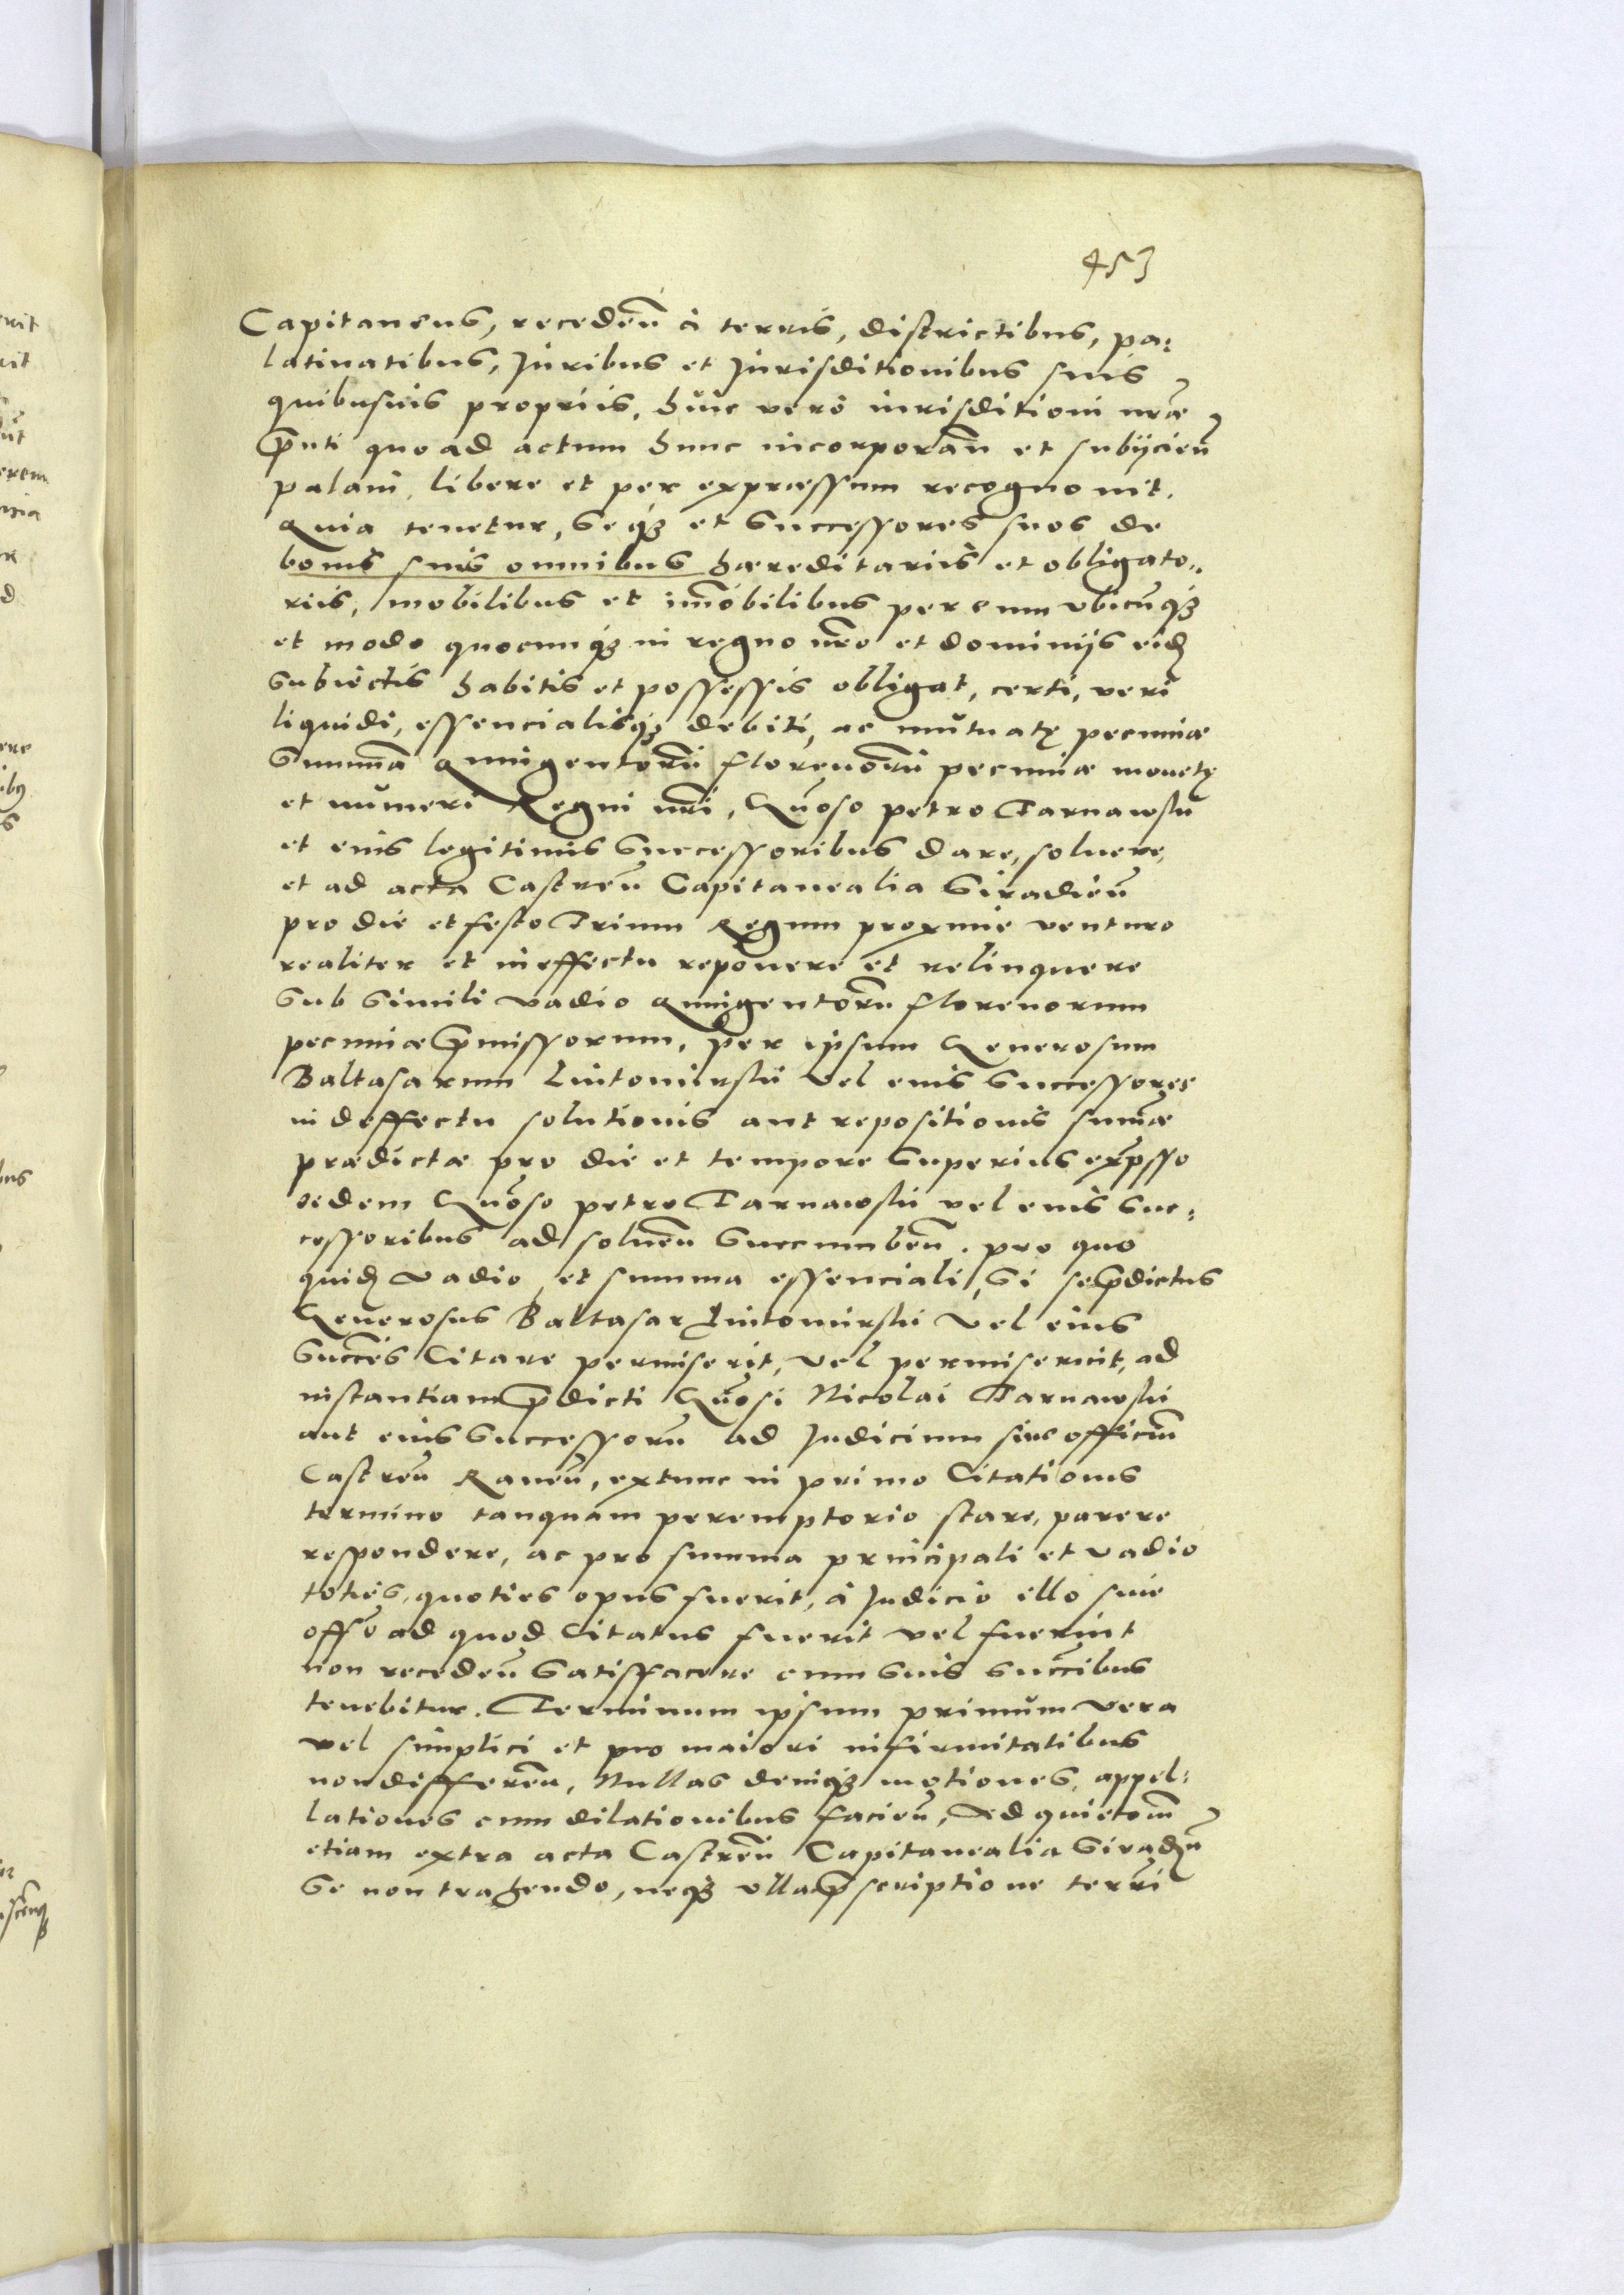 453
Capitaneus, recedeñ à terris, districtibus, pa:
latinatibus, Juribus et Jurisditionibus suis
quibusuis proprijs, huic vero iurisditioni nr̃æ
p̃nti quoad actum hunc incorporañ et subijcieñ
palam, libere et per expressum recognouit.
Quia tenetur, seq3 et successores suos de
bonis suis omnibus hæreditarijs et obligato..
rijs, mobilibus et im̃obilibus per eum vbicũq3
et modo quocunq3 in regno nr̃o et dominijs eid̃
subiectis habitis et possessis obligat, certi, veri
liquidi, essencialisq3 debiti, ac mutuatę pecuniæ
Sum̃ã Quingentorũ florenorũ pecuniæ monetę
et numeri Regni nr̃i, Gñoso petro Tarnawski
et eius legitimis successoribus dare, soluere,
et ad acta Castreñ Capitanealia Siradieñ
pro die et festo Trium Regum proxime venturo
realiter et in effectu reponere et relinquere
sub simili vadio Quingentorũ florenorum
pecuniæ p̃missorum, per ipsum Generosum
Baltasarum Lutomirski vel eius successores
in deffectu solutionis aut repositionis sum̃æ
prædictæ pro die et tempore superius exp̃sso
eidem Gñoso petro Tarnawski vel eius suc:
cessoribus ad soluẽn succumbeñ. pro quo
quid̃ vadio, et summa essenciali, si sep̃dictus
Generosus Baltasar Lutomirski vel eius
succẽs Citare permiserit, vel permiserint, ad
instantiam p̃dicti Gñosi Nicolai Tarnawski
aut eius successorũ ad Judicium siue officiũ
Castreñ Raueñ, extunc in primo Citationis
termino tanquam peremptorio stare, parere
respondere, ac pro summa principali et vadio
toties, quoties opus fuerit, à Judicio illo siue
offõ ad quod Citatus fuerit vel fuerint
non recedeñ satisfacere cum suis succ̃ibus
tenebitur. Terminum ipsum primum vera
vel simplici et pro maiori infirmitatibus
non differeñ, Nullas deniq3 motiones, appel:
lationes cum dilationibus facieñ, Ad quietoñ
etiam extra acta Castreñ Capitanealia Siradieñ
se non trahendo, neq3 vlla p̃scriptione terri